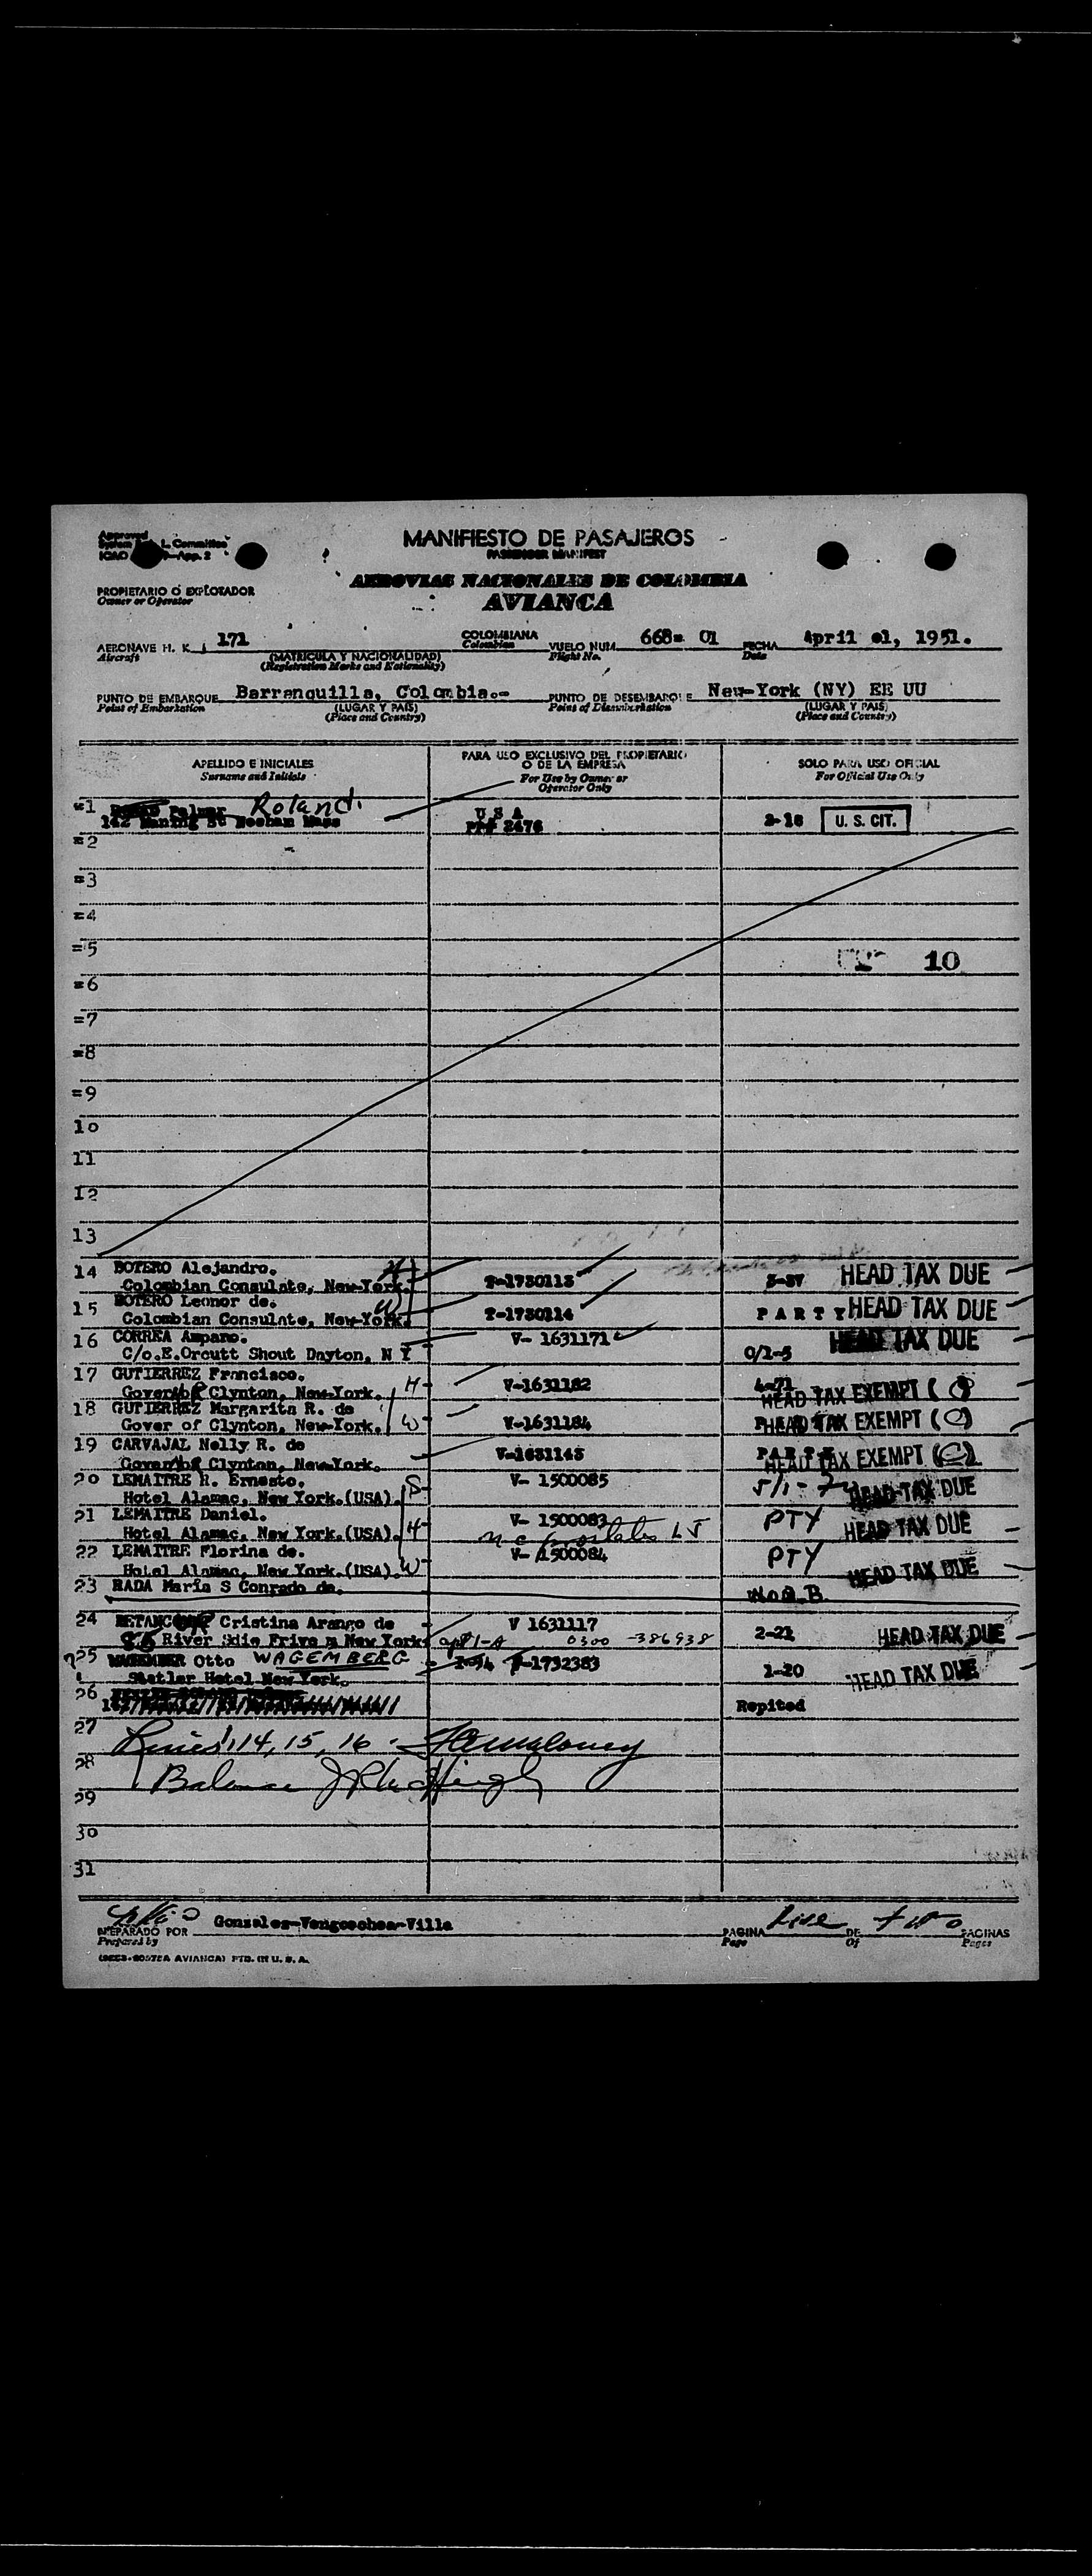 Approved
L. Committee
ICAO App. 2
MANIFIESTO DE PASAJEROS
PASSENGER MANIFEST
AEROVIAS NACIONALES DE COLOMBIA
AVIANCA
PROPIETARIO O EXPLOTADOR
Owner or Operator
AERONAVE H. K. 171 COLOMBIANA VUELO NUM 668= 01 FECHA April 01, 1951.
Aircraft (MATRICULA Y NACIONALIDAD) Colombian Flight No. Date
(Registration Marks and Nationality)
PUNTO DE EMBARQUE Barranquilla, Colombia.- PUNTO DE DESEMBARQUE New-York (NY) EE UU
Point of Embarkation (LUGAR Y PAIS) Point of Disembarkation (LUGAR Y PAIS)
(Place and Country) (Place and Country)
APELLIDO E INICIALES PARA USO EXCLUSIVO DEL PROPIETARIO O DE LA EMPRESA SOLO PARA USO OFICIAL
Surname and Initials For Use by Owner or Operator Only For Official Use Only
=1 Palmer Roland. U S A 2-16 U. S. CIT.
142 Maning St Needham Mass PP# 2476
=2
=3
=4
=5
10
=6
=7
=8
=9
10
11
12
13
14 BOTERO Alejandro. H HEAD TAX DUE
Colombian Consulate, New-York. T-1730113 3-37
15 BOTERO Leonor de. W
Colombian Consulate, New-York. T-1730114 P A R T Y HEAD TAX DUE
16 CORREA Amparo. V- 1631171 HEAD TAX DUE
C/o.E.Orcutt Shout Dayton, N Y 0/1-5
17 GUTIERREZ Francisco. H V-1631182 4-71 HEAD TAX EXEMPT
Clynton, New-York.
18 GUTIERREZ Margarita R. de W
Gover of Clynton, New-York. V-1631184 HEAD TAX EXEMPT
19 CARVAJAL Nelly R. de V-1631143 PARTY HEAD TAX EXEMPT
Clynton, New-York.
20 LEMAITRE R. Ernesto. S V- 1500085 5/1-7 HEAD TAX DUE
Hotel Alamac, New York.(USA)
21 LEMAITRE Daniel. V- 1500083 PTY HEAD TAX DUE
Hotel Alamac, New York.(USA). H
22 LEMAITRE Florina de. V- 1500084 PTY HEAD TAX DUE
Hotel Alamac, New York.(USA). W
23 RADA María S Conrado de. N.O.B.
24 Cristina Arango de V 1631117 2-21 HEAD TAX DUE
River Sdie Frive New York apt 1-A 0300 -386938
25 Otto WAGEMBERG T-1732383 1-20 HEAD TAX DUE
Statler Hotel New York.
26 Repited
27 Lines 14, 15, 16
28 Balance
29
30
31
PREPARADO POR Gonzales-Vengoechea-Villa PAGINA DE two PAGINAS
Prepared by Page Of Pages
AVIANCA) PTD. IN U. S. A.